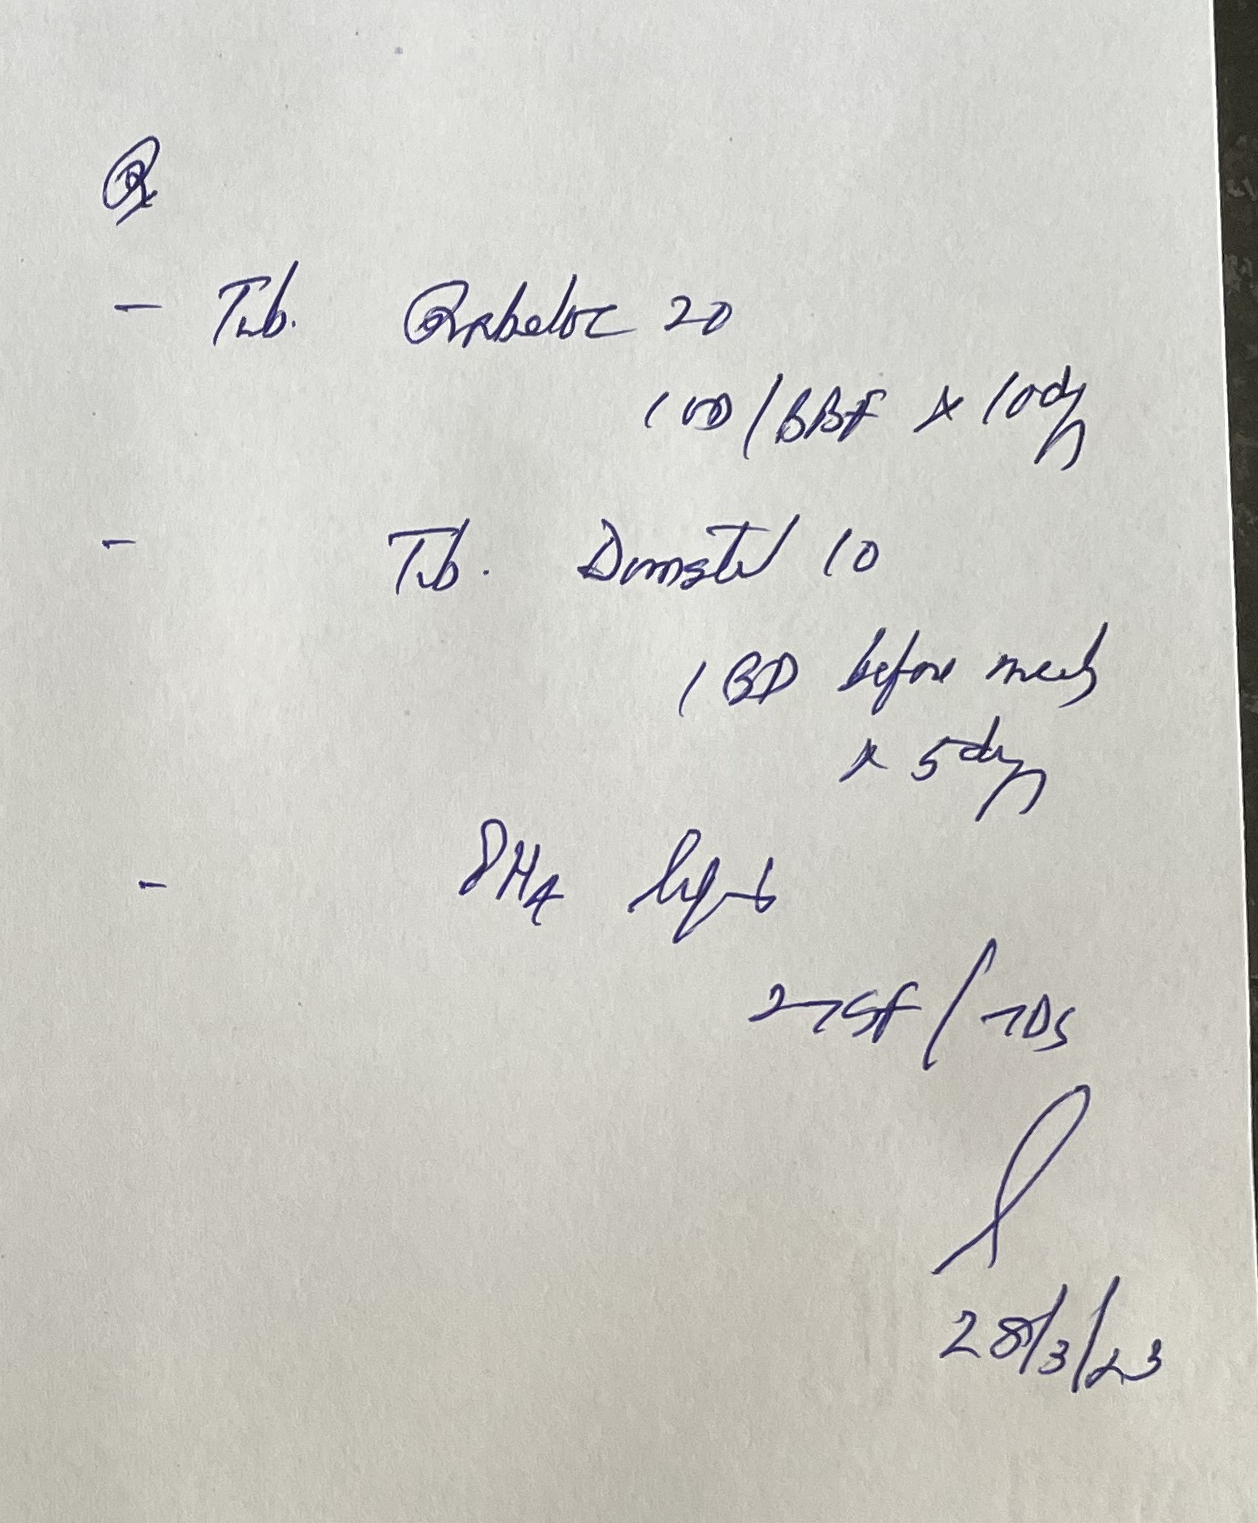 Rx
- Tab. Rabeloc 20
1 OD / BBF x 10 dys
- Tab. Domstal 10
1 BD before meals
x 5 dys
- liquid
2 TSF / TDS
28/3/23